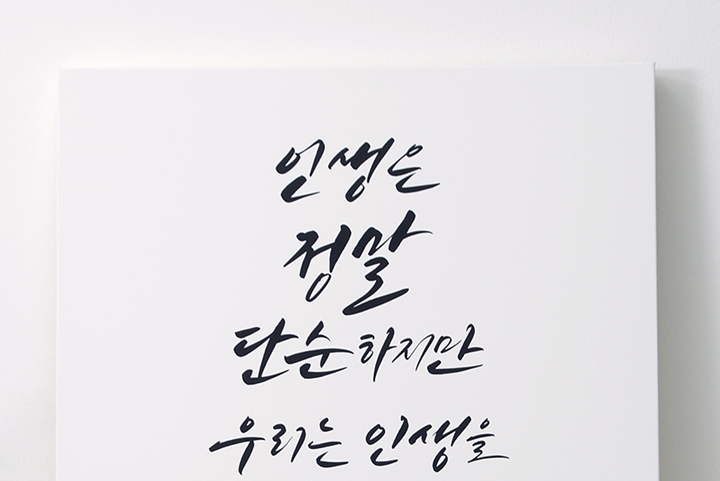 인생은
정말
단순하지만
우리는 인생을